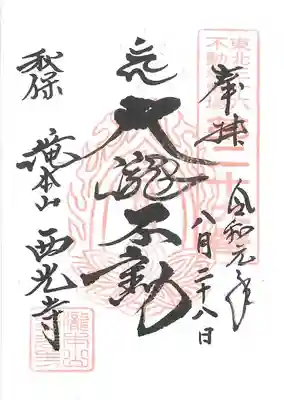 奉拝
令和元年
八月二十八日
大瀧不動
秋保
滝本山 西光寺
東北三十六
不動尊霊場
瀧本山
西光寺